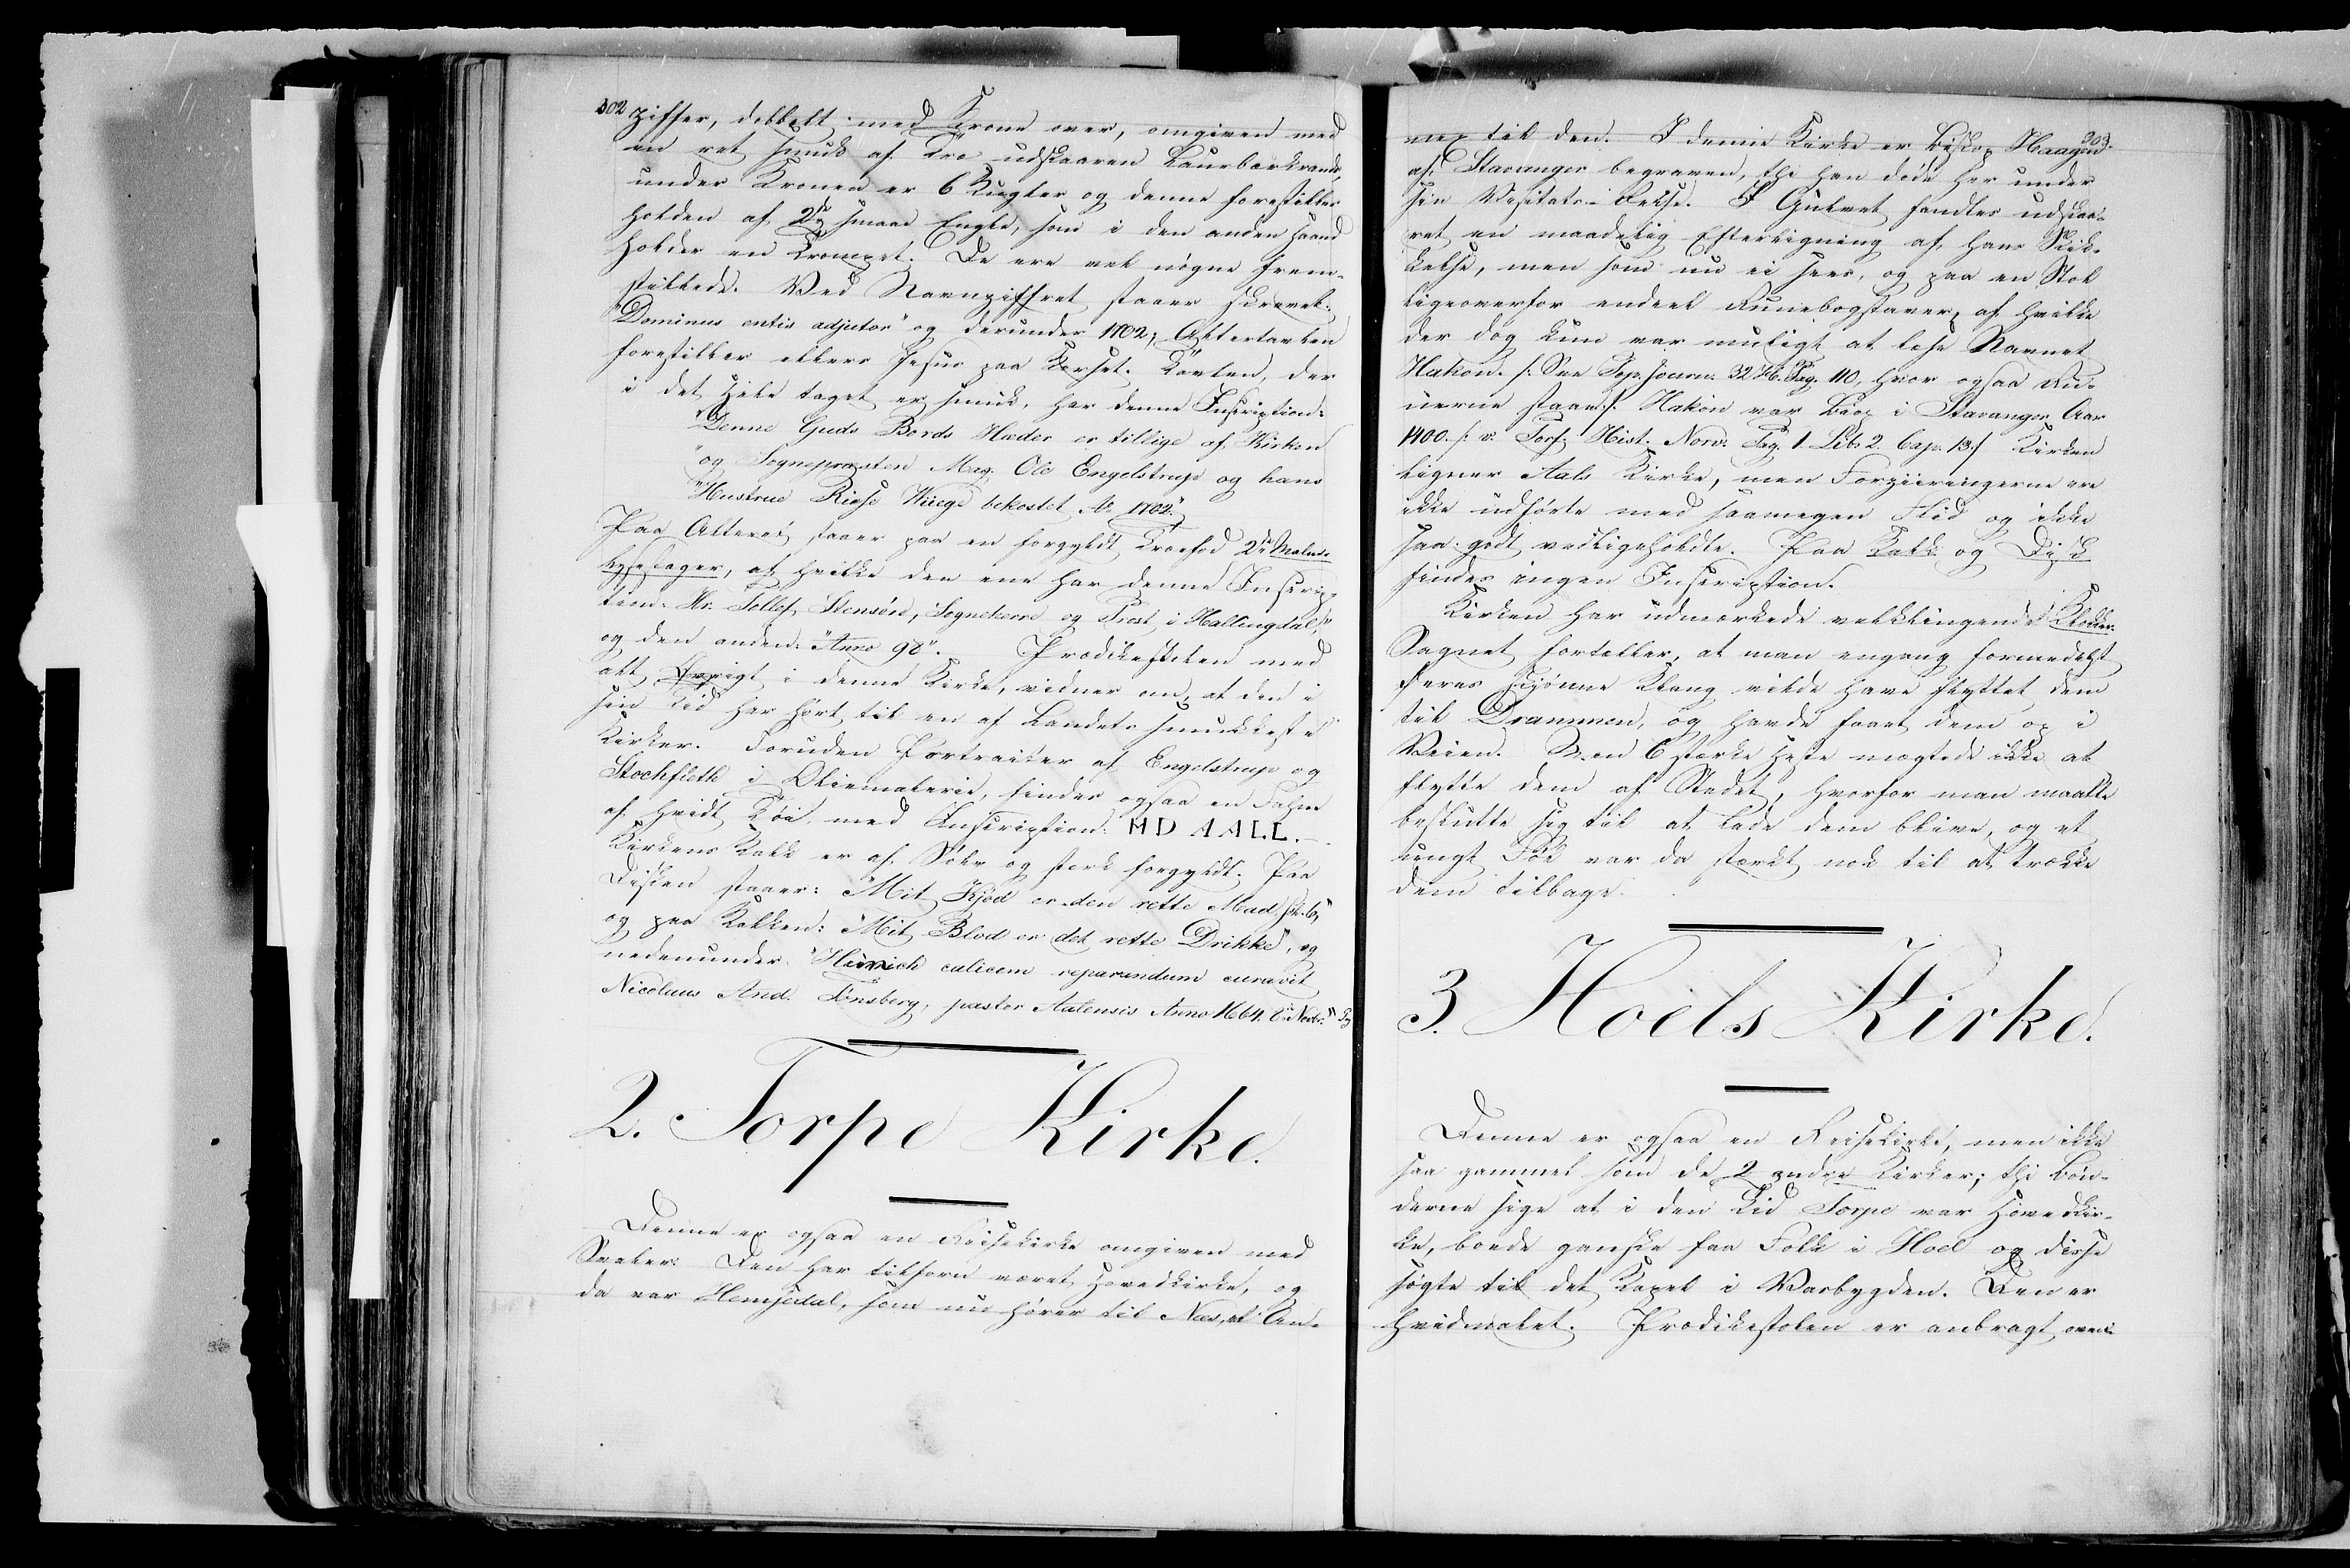 302
ziffer, dobbelt med Krone over, omgiven med
en ret smuk af Træ udskaaren Laurbærkrands,
under Kronen er 6 Kugler og denne forestilles
holden af 2de smaae Engle, som i den anden Haand
holder en Trompet. De ere vel nøgne frem-
stillede. Ved Navnziffret staaer skrevet:
"Dominus entis adjutor" og derunder 1702; Altertavlen
forestiller ellers Jesus paa Korset. Tavlen, der
i det Hele taget er smuk, har denne Inscription:
"Denne Guds Bords Hæder er tillige af Kirken
"og Sognepræsten Mag. Ole Engelstrup og hans
"Hustrue Riese Wiege bekostet Ao 1702."
Paa Alteret staaer paa en forgyldt Træefod 2de Malm-
lysestager, af hvilke den ene har denne Inscrip-
tion: Hr. Tollef Stensøn, Sogneherre og Prost i Hallingdal,"
og den anden: "Anno 98". Prædikestolen med
alt Øvrigt i denne Kirke, vidner om, at den i
sin Tid har hørt til en af Landets smukkeste
Kirker. Foruden Portraiter af Engelstrup og
Stochfleth i Oliemalerie, findes ogsaa en Fahne
af hvidt Tøi med Inscription: HD AALL.
Kirkens Kalk er af Sølv og stærk forgyldt. Paa
Disken staaer: "Mit Kjød er den rette Mad, Joh. 6,"
og paa Kalken: "Mit Blod er det rette Drikke", og
nedenunder: "Hunich calicem reparandum curavit
Nicolaus And. Tønsberg, pastor Aalensis Anno 1664. 8de Novbr."
2. Torpe Kirke.
Denne er ogsaa en Reisekirke omgiven med
Svaler. Den har tilforn været Hovedkirke, og
da var Hemsedal, som nu hører til Næs, et An-
303.
nex til den. I denne Kirke er Biskop Haagen
af Stavanger begraven, thi han døde her under
sin Visitats-Reise. I Gulvet fandtes udskaa-
ret en maadelig Efterligning af hans Skik-
kelse, men som nu ei sees, og paa en Stol
ligeoverfor endeel Runebogstaver, af hvilke
der dog kun var muligt at læse Navnet
Hakon. /: See Top. Journ. 32 H. Pag. 110, hvor ogsaa Ru-
nerne staae :/. Hakon var Bisp i Stavanger Aar
1400. /: v. Torf. Hist. Norv. Pag. 1. Lib. 2 Cap. 13:/ Kirken
ligner Aals Kirke, men Forziiringerne ere
ikke udførte med saamegen Flid og ikke
saa godt vedligeholdte. Paa Kalk og Disk
findes ingen Inscription.
Kirken har udmærkede velklingende Klokker.
Sagnet fortæller, at man engang formedelst
deres skjønne Klang vilde have flyttet dem
til Drammen, og havde faaet dem op i
Veien. Men 6 stærke Heste mægtede ikke at
flytte dem af Stedet, hvorfor man maatte
beslutte sig til at lade dem blive, og et
ungt Føl var da stærkt nok til at trække
dem tilbage.
3. Hoels Kirke.
Denne er ogsaa en Reisekirke, men ikke
saa gammel som de 2 andre Kirker; thi Bøn-
derne sige at i den Tid Torpe var Hovedkir-
ke, boede ganske faa Folk i Hoel og disse
søgte til det Kapel i Vasbygden. Den er
hvidmalet. Prædikestolen er anbragt oven